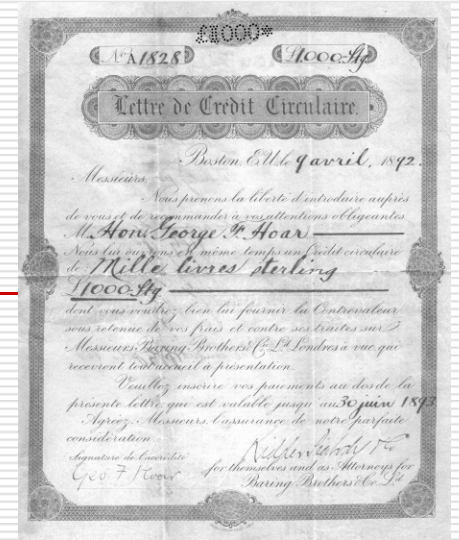 £1000*
No. A1828 £1000 Stg
Lettre de Crédit Circulaire.
Boston, E.U. le 9 avril, 1892.
Messieurs,
Nous prenons la liberté d'introduire auprès
de vous et de recommander à vos attentions obligeantes
M. Hon. George F. Hoar
Nous lui ouvrons en même temps un Crédit circulaire
de Mille livres sterling
£1000 Stg
dont vous voudrez bien lui fournir la Contrevaleur
sous retenue de vos frais et contre ses traites sur
Messieurs Baring Brothers & Co. Ld. Londres à vue qui
recevront tout accueil à présentation.
Veuillez inscrire vos paiements au dos de la
présente lettre qui est valable jusqu'au 30 juin 1893
Agréez, Messieurs, l'assurance de notre parfaite
considération
Signature de l'accrédité Kidder Peabody & Co
Geo F Hoar for themselves and as Attorneys for
Baring Brothers & Co. Ld.